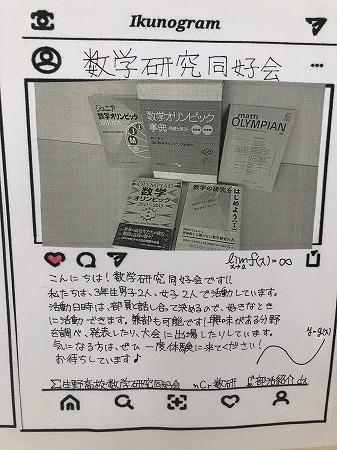 Ikunogram
数学研究同好会
ジュニア
数学オリンピック
数学オリンピック
事典
math
OLYMPIAN
OLYMPIAD
数学
オリンピック
2011~2015
数学の研究を
はじめよう
lim f(x)=∞
x→a
こんにちは!数学研究同好会です!!
私たちは、3年生男子2人、女子2人で活動しています。
活動日時は、部員と話し合って決めるので、好きなとき
に活動できます。兼部も可能です!興味がある分野
を調べ、発表したり、大会に出場したりしています。
気になる方は、ぜひ一度体験に来てください!
お待ちしています♪
y=g(x)
Σ生野高校数学研究同好会 nCr数研 ∫部活紹介dx